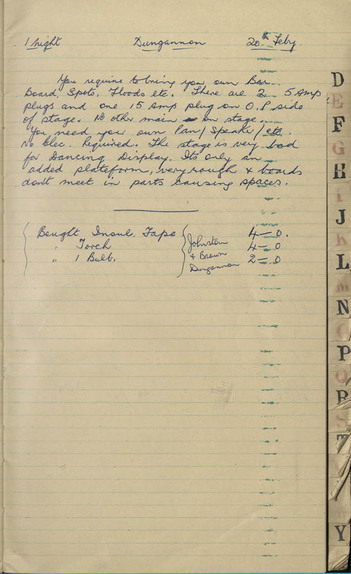 1 night Dungannon 20th Feby
You require to bring you own Bar.
Board, Spots, Floods etc. There are 2 5 Amp
plugs and one 15 Amp plug on O.P side
of stage. No other main on stage.
You need you own Pan/Speaker/etc.
No Elec. Required. The stage is very bad
for Dancing Display. Its only an
added plateform, very rough & boards
don't meet in parts causing spaces.
Bought Insul. Tape 4=0.
Torch 4=0
" 1 Bulb. 2=0
Johnston
& Brown
Dungannon
D
E
F
G
H
I
J
K
L
M
N
O
P
Q
R
S
T
Y